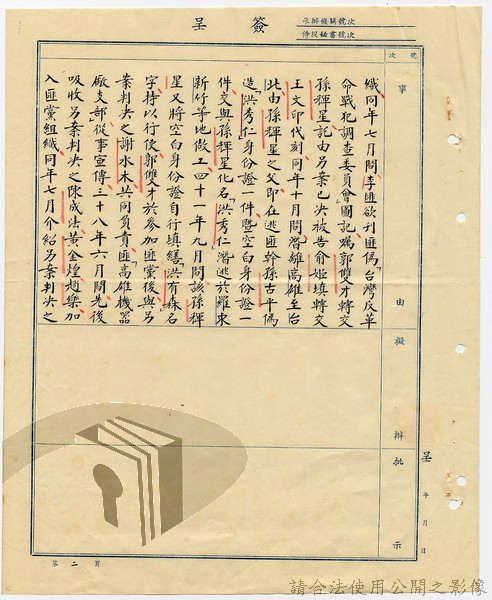 簽呈
承辦機關號次
侍從秘書號次
號次
事由
擬辦
批示
織同年七月間李匪欲刊匪偽「台灣反革
命戰犯調查委員會圖記囑郭雙才轉交
孫輝星託由另案已決被告俞姬填轉交
王文印代刻同年十月間潛離高雄至台
北由孫輝星之父即在逃匪幹孫古平偽
造「洪秀仁身份證一件暨空白身份證一
件交與孫輝星化名「洪秀仁潛逃於羅東
新竹等地做工四十一年九月間該孫輝
星又將空白身份證自行填繕「洪有森名
字持以行使郭雙才於參加匪黨後與另
案判決之謝水木共同負責匪「高雄機器
廠支部從事宣傳三十八年六月間先後
吸收另案判決之陳成法黃金煌趙榮加
入匪黨組織同年七月介紹另案判決之
呈
年月日
第二頁
請合法使用公開之影像